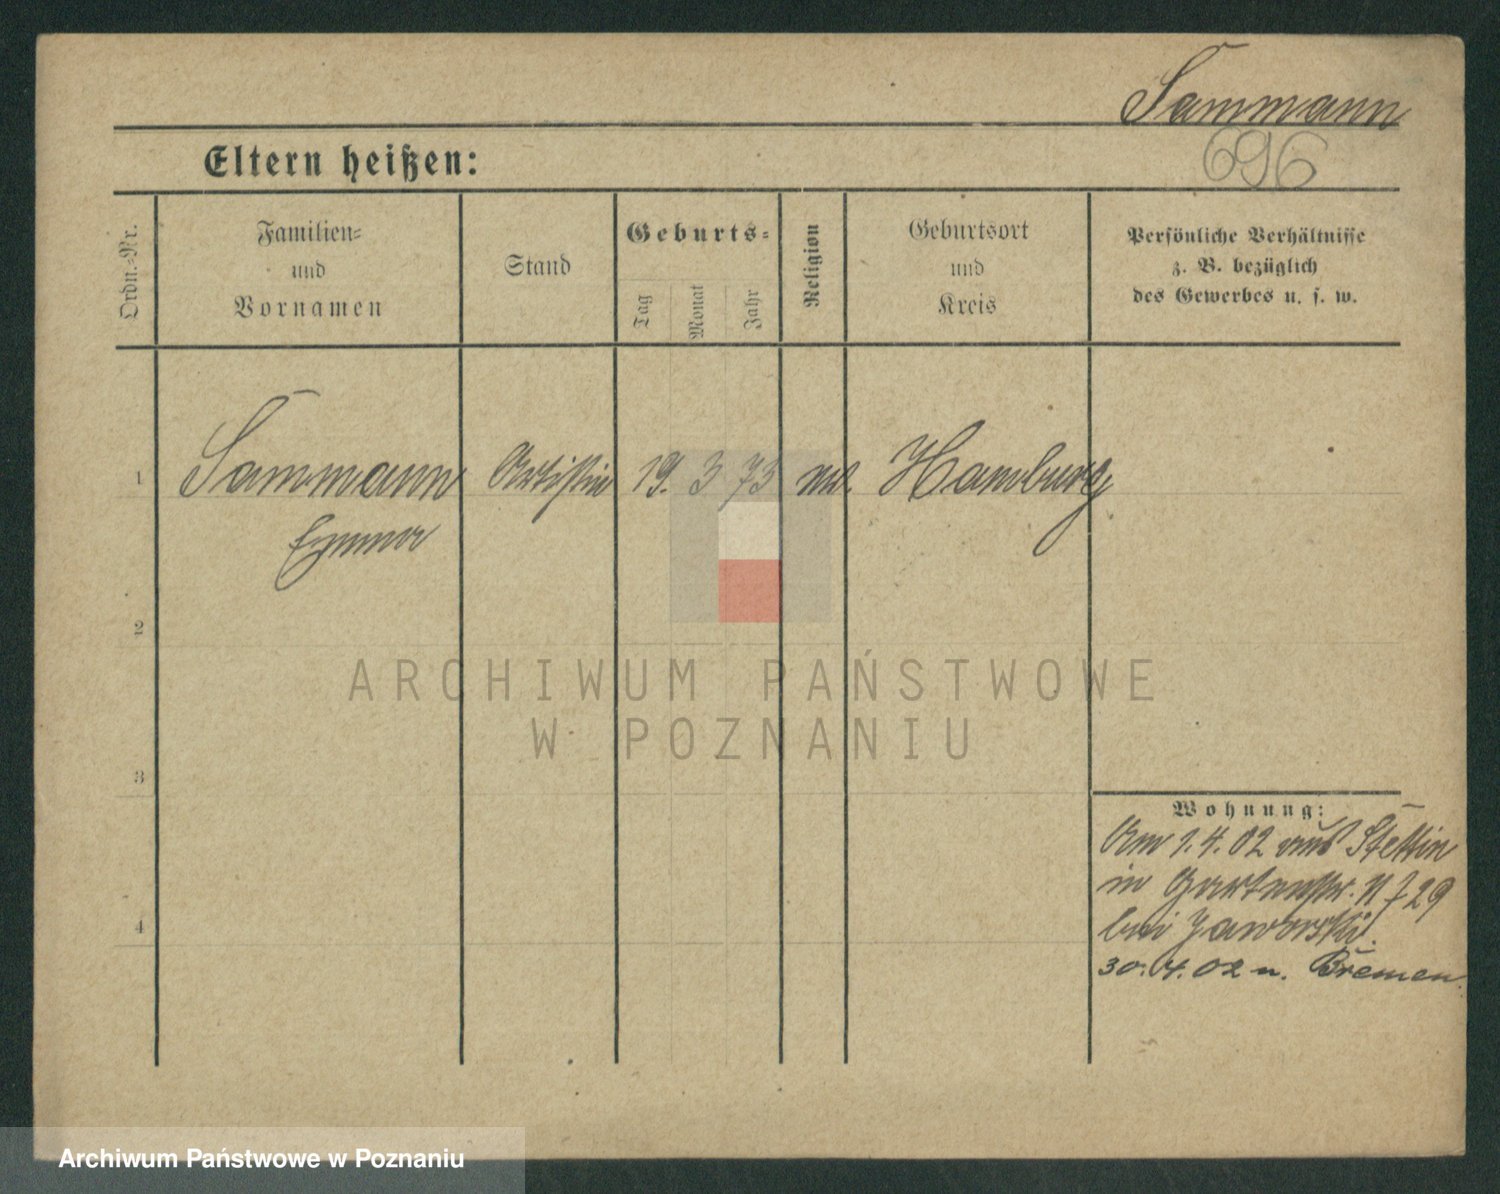 Sammann
696
Eltern heißen:
Ordn.-Nr.
Familien-
und
Vornamen
Stand
Geburts-
Tag
Monat
Jahr
Religion
Geburtsort
und
Kreis
Persönliche Verhältnisse
z. B. bezüglich
des Gewerbes u. s. w.
1 Sammann Artistin 19. 3 73 Hamburg
2
ARCHIWUM PAŃSTWOWE
W POZNANIU
3
Wohnung:
Am 1.4.02 aus Stettin
in Gartenstr. 29
bei Jaworski.
4
30.4.02 n. Bremen.
Archiwum Państwowe w Poznaniu